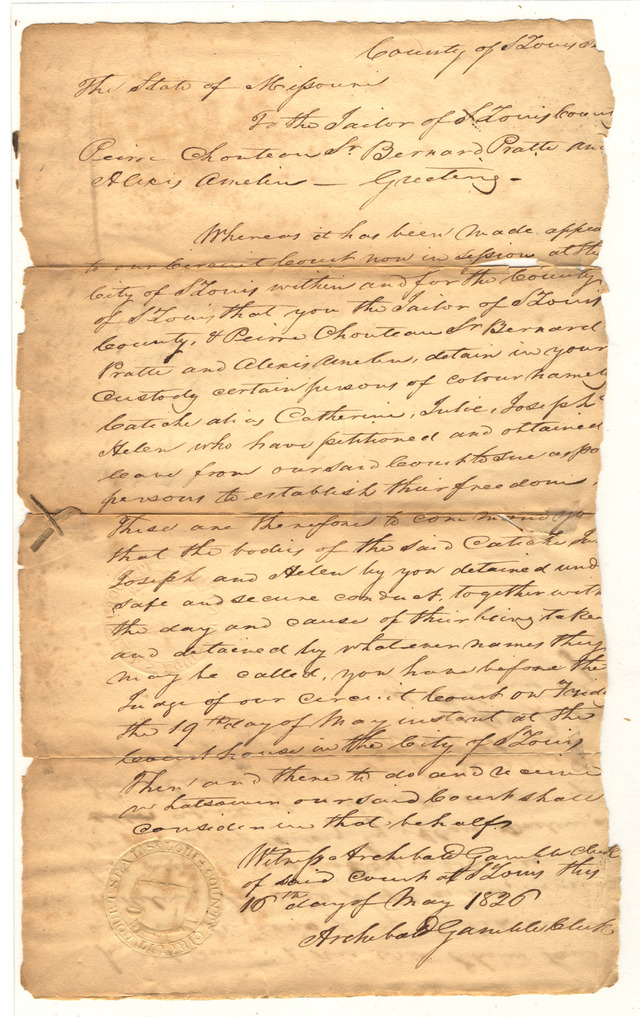 County of St Louis
The State of Missouri
To the Jailor of St Louis Coun
Peirre Chouteau Sr Bernard Pratte an
Alexis Amelin — Greeting -
Whereas it has been made appea
to our Circuit Court now in session at the
City of St Louis within and for the County
of St Louis, that you the Jailor of St Louis
County, & Peirre Chouteau Sr Bernard
Pratte and Alexis Amelin, detain in your
custody certain persons of colour namely
Catiche alias Catherine, Julie, Joseph &
Helen who have petitioned and obtained
leave from our said Court to sue as poo
persons to establish their freedom.
These are therefore to command you
that the bodies of the said Catiche Ju
Joseph and Helen by you detained und
safe and secure conduct, together with
the day and cause of their being taken
and detained by whatever names they
may be called, you have before the
Judge of our circuit Court on Frida
the 19th day of May instant at the
Court house in the City of St Louis
Then and there to do and receive
whatsoever our said Court shall
consider in that behalf.
Witness Archibald Gamble Clerk
of said Court at St Louis this
16th day of May 1826
Archibald Gamble Clerk
SEAL ST LOUIS COUNTY CIRCUIT COURT